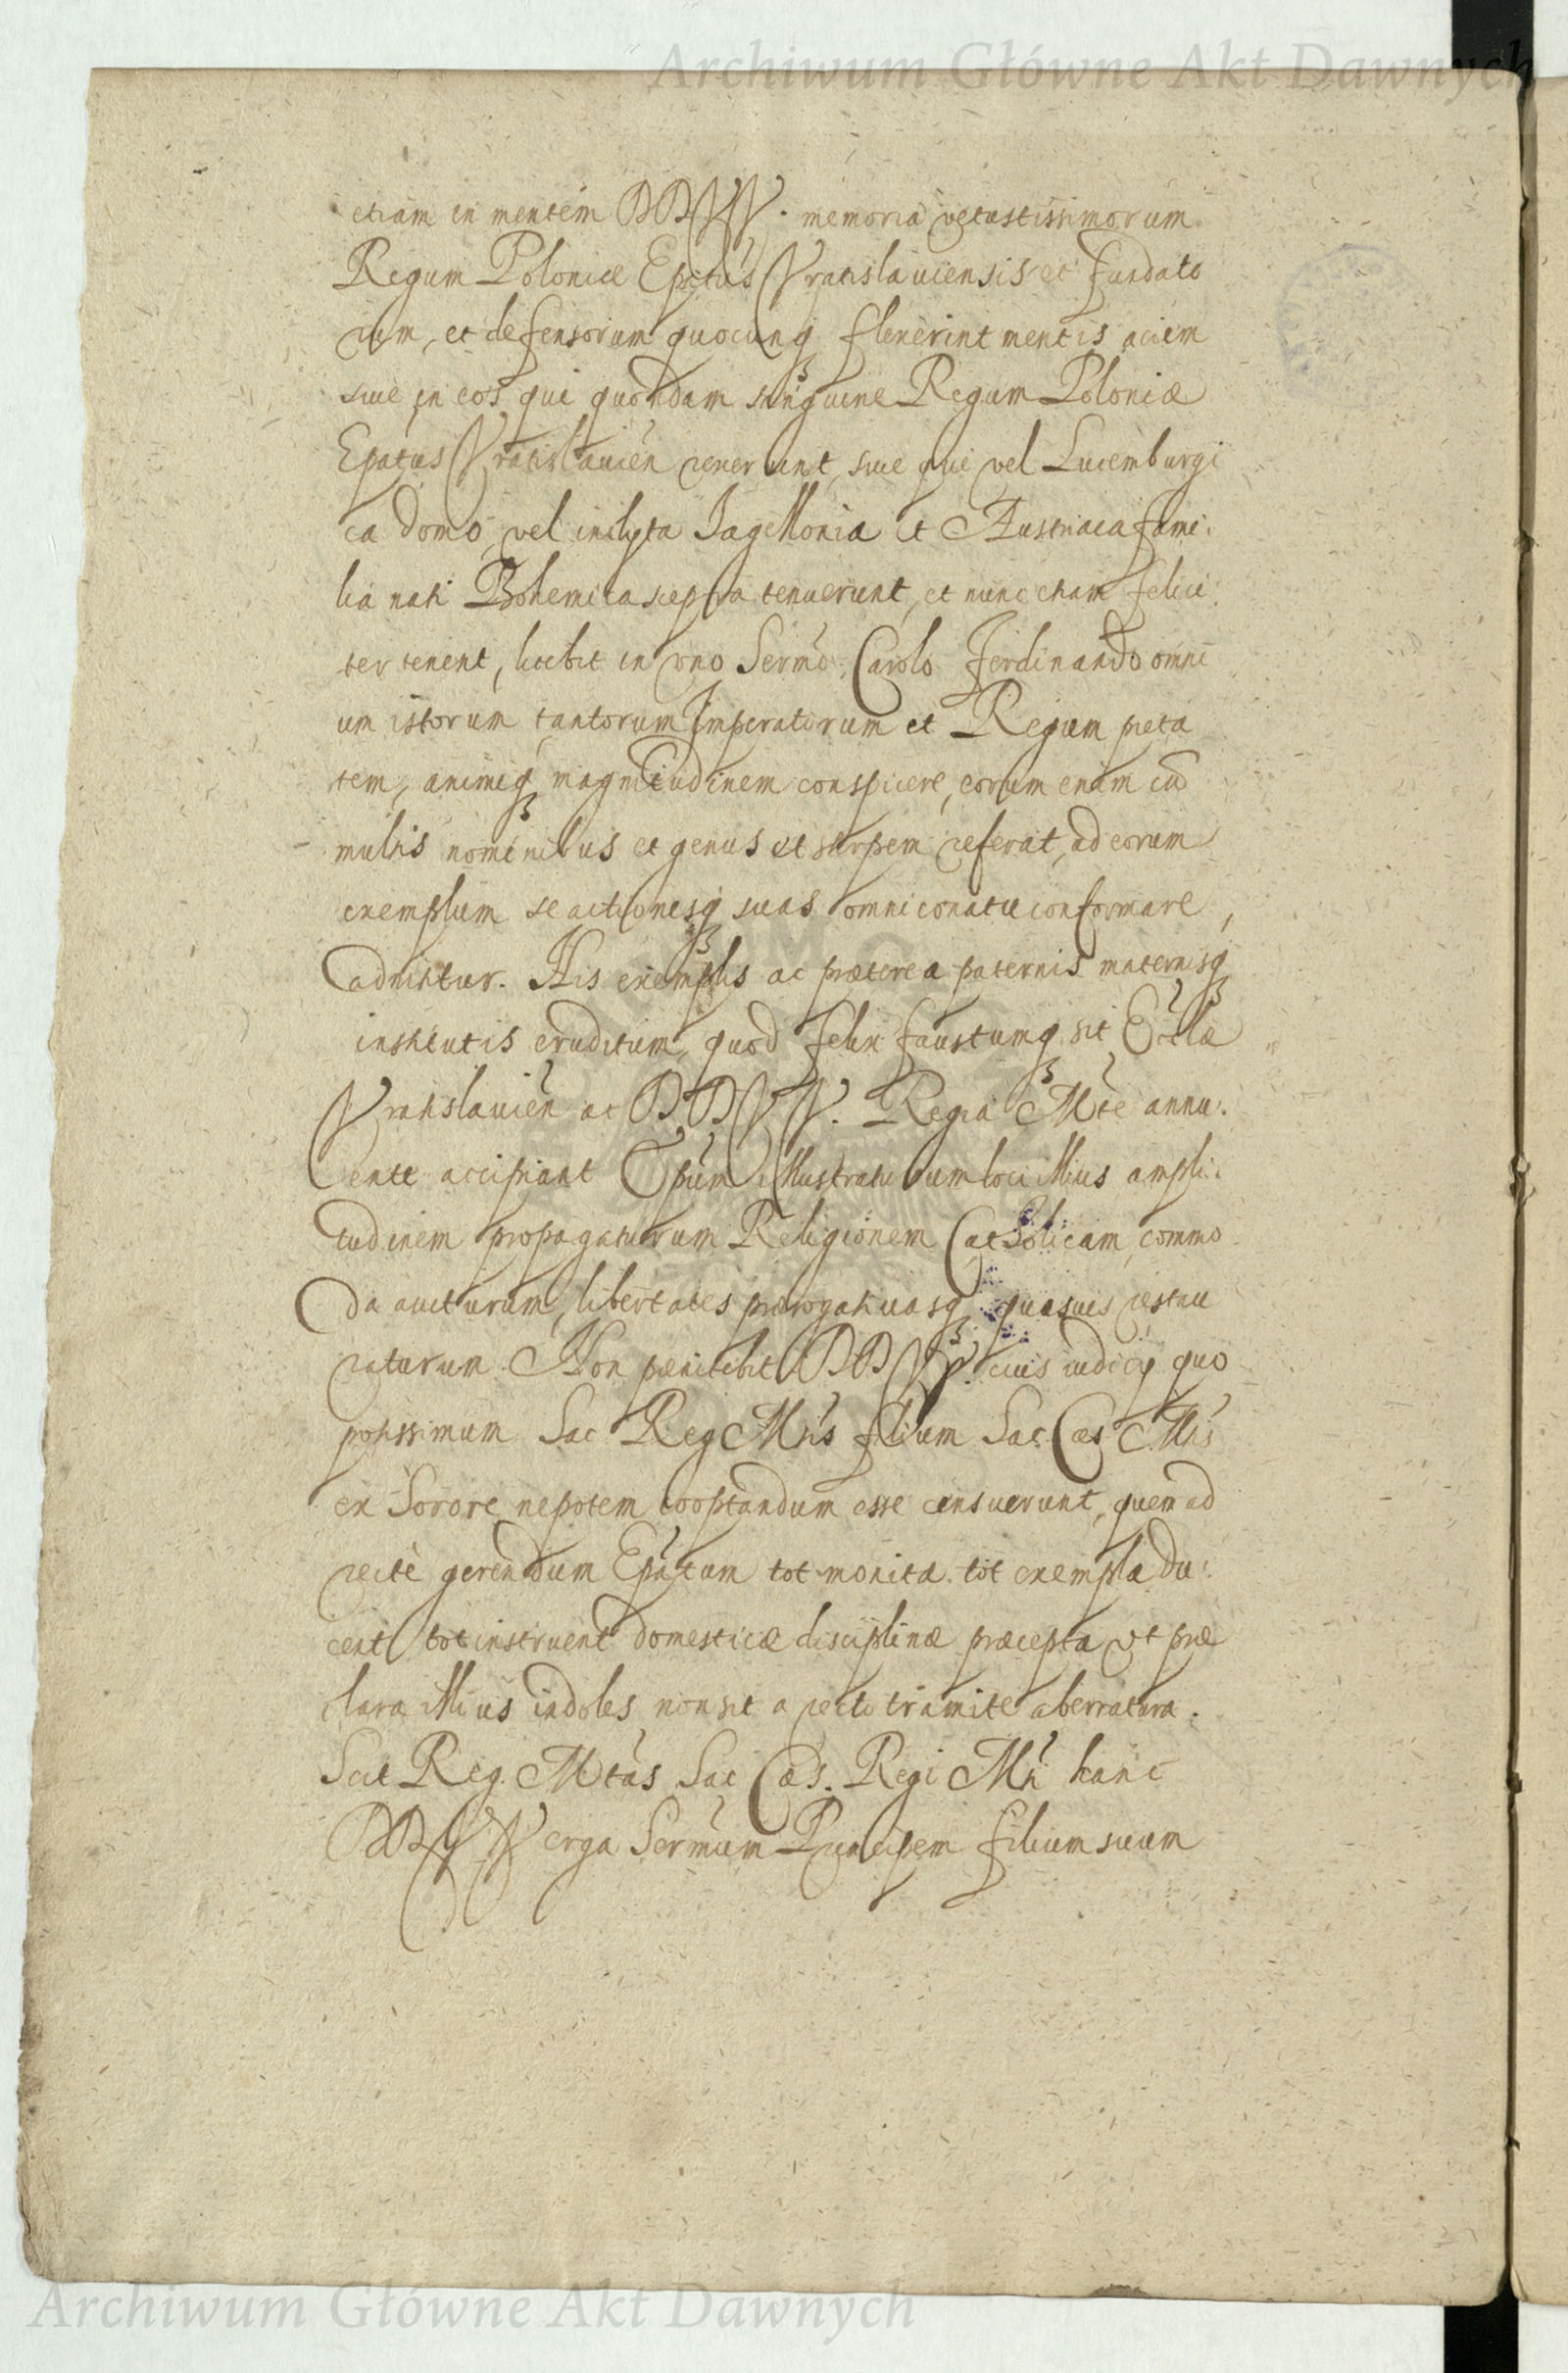 Archiwum Główne Akt Dawnych
etiam in mentem DDVV. memoria vetustissimorum
Regum Poloniæ Epatus Vratislauiensis et fundato
rum, et defensorum quocunq flexerint mentis aciem
siue in eos qui quondam sanguine Regum Poloniæ
Epatus Vratislauien rexerunt, siue qui vel Lucemburgi
ca domo, vel inclyta Jagellonia et Austriaca fami.
lia nati Bohemica sceptra tenuerunt, et nunc etiam felici
ter tenent, licebit in vno Sermo. Carolo Ferdinando omni
um istorum tantorum Imperatorum et Regum pieta
tem, animiq magnitudinem conspicere, eorum enim cū
multis nominibus et genus et stirpem referat, ad eorum
exemplum se actionesq suas omni conatu conformare,
adnititur. His exemplis ac præterea paternis maternisq
institutis eruditum, quod felix faustumq sit Ecclæ
Vratislauien ac DDVV. Regia Mte annu.
ente accipiant Epum illustraturum loci illius ampli.
tudinem propagaturum Religionem Catholicam, commo
da aucturum, libertates prærogatiuasq quasuis restau
raturum. Non pœnitebit DDVV. eius iudicij quo
potissimum Sac Reg Mtis filium Sac. Cæs Mtis
ex Sorore nepotem cooptandum esse censuerunt, quem ad
recte gerendum Epatum tot monita tot exempla du.
cent tot instruent domesticæ disciplinæ præcepta vt præ
clara illius indoles non sit a recto tramite aberratura.
Scit Reg. Mtas Sac Cæs. Regi Mti hanc
DDVV erga Sermum Principem filium suum
Archiwum Główne Akt Dawnych